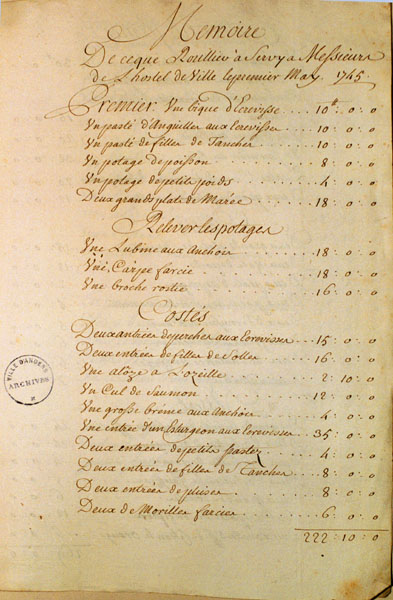 Memoire
De ceque Roullier à Servy a Messieurs
de L'hostel de Ville le premier May 1745
Premier Une bique d'Erevisse 10# : 0 : 0
Un pasté d'Anguiller aux Ecrevisser 10 : 0 : 0
Un pasté de filler de Tancher 10 : 0 : 0
Un potage de poisson 8 : 0 : 0
Un potage de petits poids 4 : 0 : 0
Deux grands plats de Marée 18 : 0 : 0
Relever les potages
Une Lubine aux Anchois 18 : 0 : 0
Une Carpe farcie 18 : 0 : 0
Une broche rostie 16 : 0 : 0
Costés
Deux antrées de percher aux Ecrevisser 15 : 0 : 0
Deux entrées de filler de Solles 16 : 0 : 0
Une aloze a Lozeille 2 : 10 : 0
Un Cul de Saumon 12 : 0 : 0
Une grosse breme aux Anchois 4 : 0 : 0
Une entrée d'un Esturgeon aux Ecrevisser 35 : 0 : 0
Deux entrées de petits pastez 4 : 0 : 0
Deux entrées de filler de Tancher 8 : 0 : 0
Deux entrées de 8 : 0 : 0
Deux de Moriller farcies 6 : 0 : 0
222 : 10 : 0
VILLE D'ANGERS
ARCHIVES